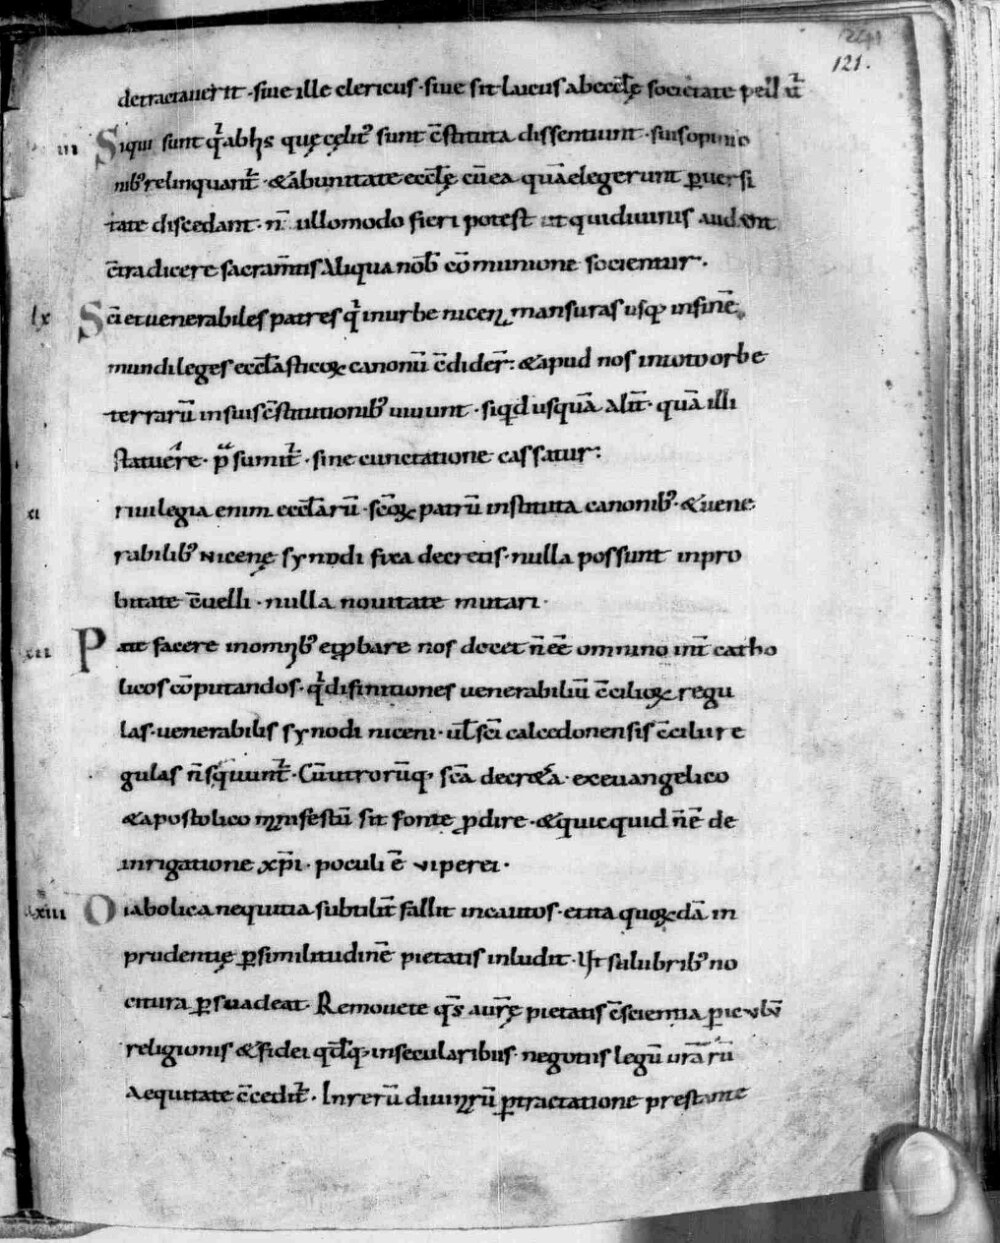 121.
detractauerit · siue ille clericus · siue sit laicus ab eccłę societate pell
iii Siqui sunt qͥ ab hꝭ quę cęlitᷣ sunt c̄stituta dissentiunt · suis opinio
nibᷣ relinquant᷑ · & ab unitate eccłę cū ea quā elegerunt ꝑuersi
tate discedant · n̄ ullomodo fieri potest ut qui diuinis audent
c̄tradicere sacram̄tis Aliqua nob̄ cōmunione socientur .
lx Sc̄i et uenerabiles patres qͥ in urbe nicena mansuras usqꝫ in finē
mundi leges eccłasticoꝝ canonū c̄dider̄ : & apud nos in toto orbe
terrarū in suis c̄stitutionibᷣ uiuunt · siqͥd usquā alit̄ · quā illi
statuere · p̄sumit᷑ · sine cunctatione cassatur :
xi riuilegia enim eccłarū · sc̄oꝝ patrū instituta canonibᷣ · & uene
rabilibᷣ nicenę synodi fixa decretis · nulla possunt inpro
bitate c̄uelli · nulla nouitate mutari ·
xii Pate facere in omībᷣ et ꝓbare nos decet n̄ eē omnino int̄ catho
licos cōputandos · qͥ difinitiones uenerabiliū c̄cilioꝝ regu
las · uenerabilis synodi niceni · ut̄ sc̄i calcedonensis c̄cilii re
gulas n̄ sequunt᷑ · Cū utrorūqꝫ sc̄a decr&a · ex euangelico
& apostolico manifestū sit fonte ꝓdire · & quicquid n̄ ē de
inrigatione xp̄i · poculi ē uiperei ·
xiii Diabolica nequitia subtilit̄ fallit incautos · et ita quoꝝdā in
prudentię ꝑ similitudinē pietatis inludit · Ut salubribᷣ no
citura ꝑsuadeat · Remouete qͥs aurę pietatis c̄scientia
religionis & fidei qd̄qꝫ in secularibus · negotiis legū urārū
Aequitate c̄cedit᷑ · In rerū diuinarū ꝑtractatione prestante